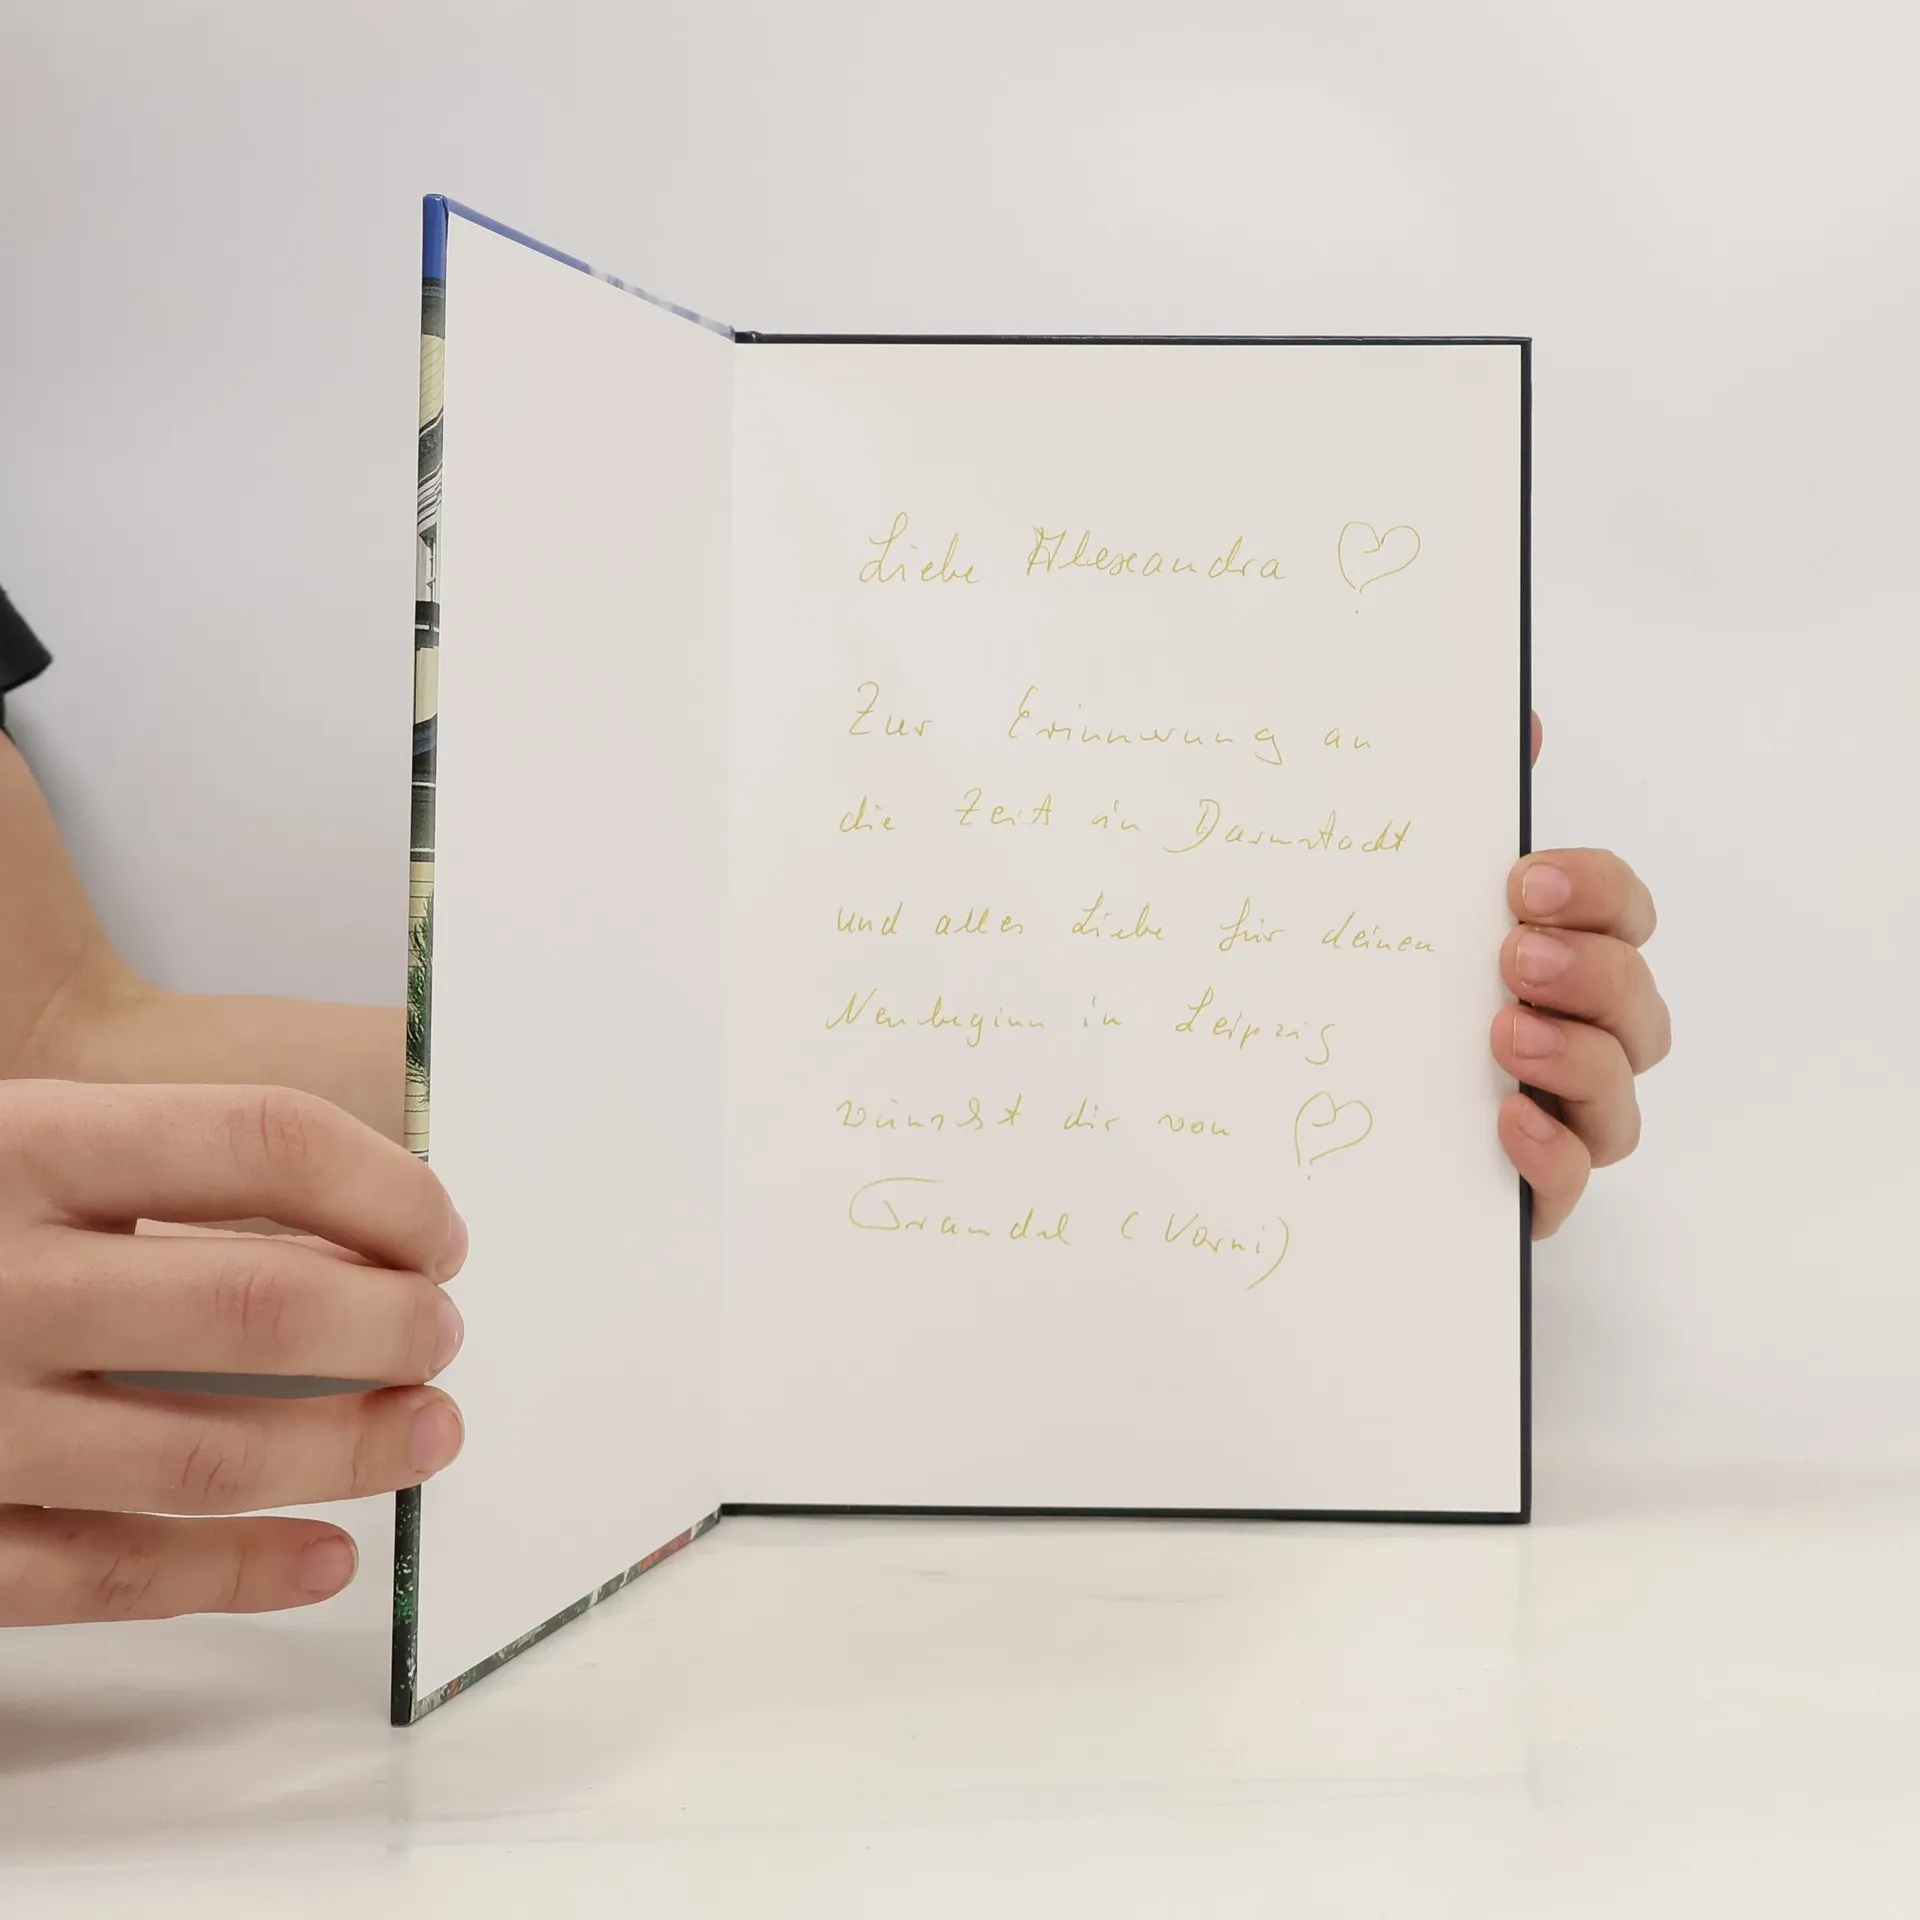 Liebe Alexandra
Zur Erinnerung an
die Zeit in Darmstadt
und alles Liebe für deinen
Neubeginn in Leipzig
wünscht dir von
(Vorni)